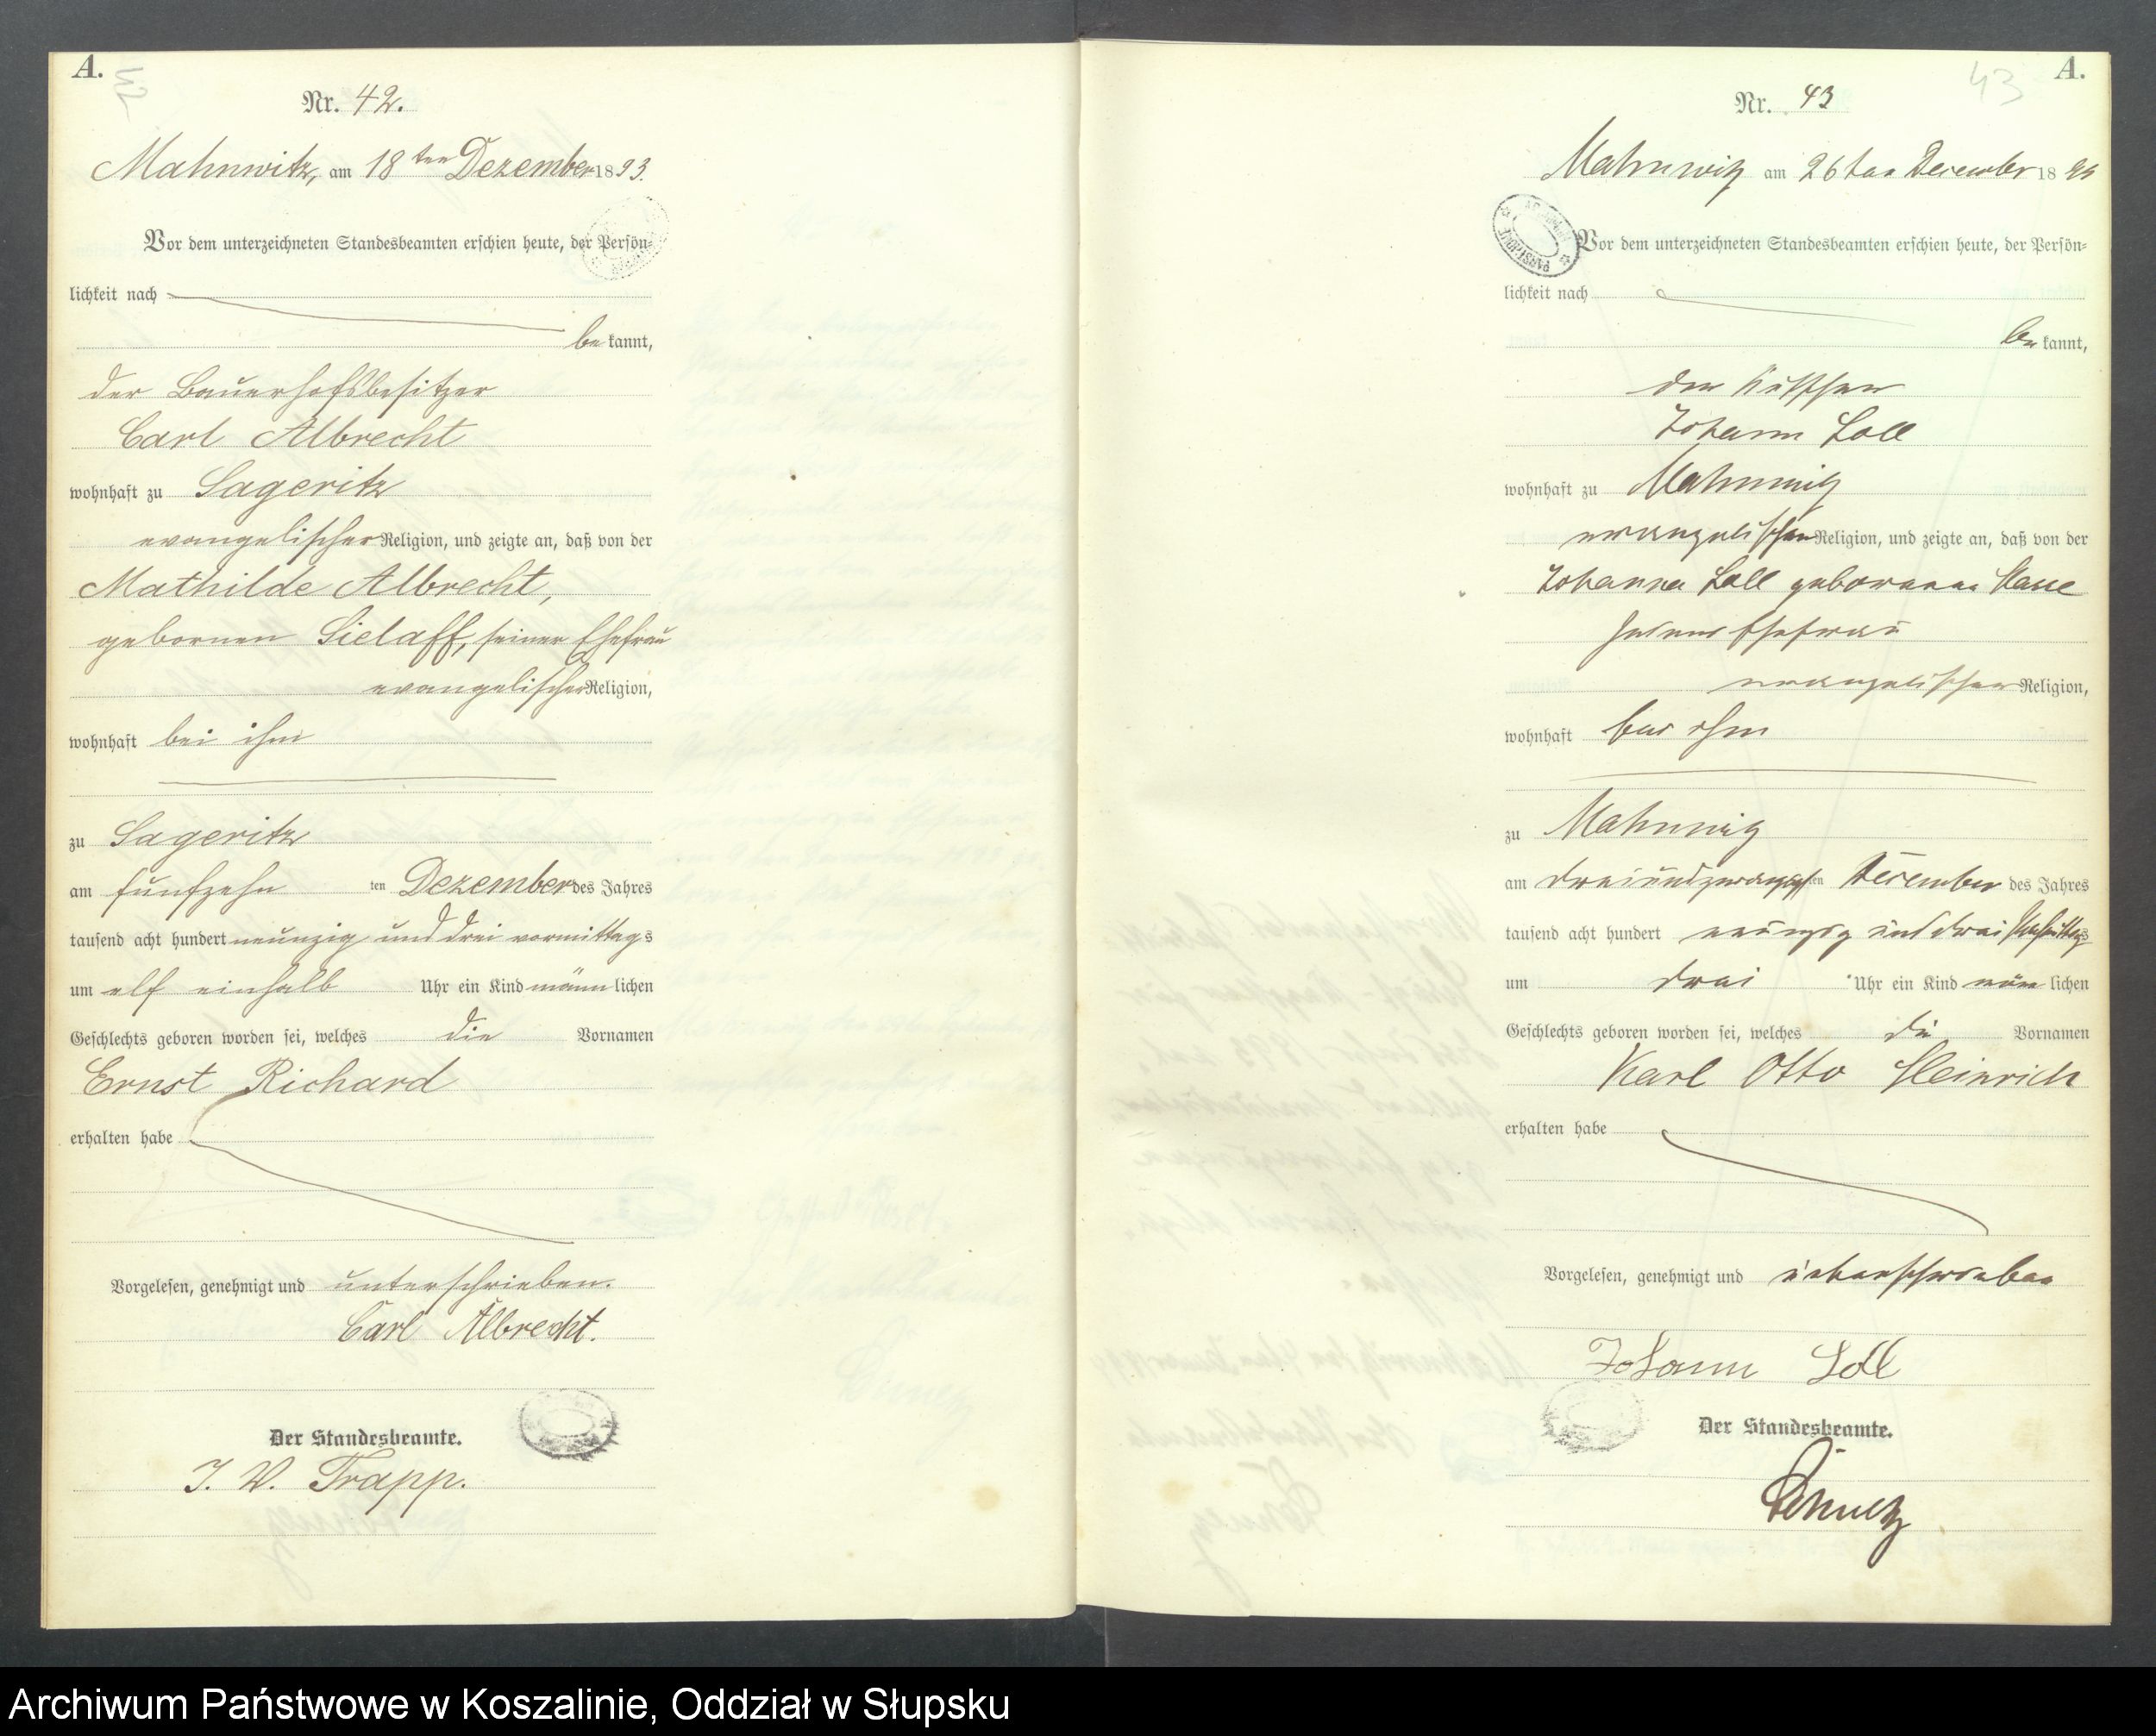 A.
42
Nr. 42.
Mahnwitz, am 18ten Dezember 1893.
Vor dem unterzeichneten Standesbeamten erschien heute, der Persön-
lichkeit nach
be kannt,
der Bauerhofsbesitzer
Carl Albrecht
wohnhaft zu Sageritz
evangelischer Religion, und zeigte an, daß von der
Mathilde Albrecht,
gebornen Sielaff, seiner Ehefrau
evangelischer Religion,
wohnhaft bei ihm
zu Sageritz
am fünfzehn ten Dezember des Jahres
tausend acht hundert neunzig und drei vormittags
um elf einhalb Uhr ein Kind männ lichen
Geschlechts geboren worden sei, welches die Vornamen
Ernst Richard
erhalten habe
Vorgelesen, genehmigt und unterschrieben.
Carl Albrecht.
Der Standesbeamte.
J. V. Trapp.
A.
43
Nr. 43
Mahnwitz am 26ten December 18
Vor dem unterzeichneten Standesbeamten erschien heute, der Persön-
lichkeit nach
be kannt,
der
Johann Loll
wohnhaft zu Mahnwitz
evangelischer Religion, und zeigte an, daß von der
Johanna Loll geborenen
seiner Ehefrau
evangelischer Religion,
wohnhaft bei ihm
zu Mahnwitz
am dreiundzwanzigsten December des Jahres
tausend acht hundert neunzig und drei Nachmittags
um drei Uhr ein Kind män lichen
Geschlechts geboren worden sei, welches die Vornamen
Karl Otto Heinrich
erhalten habe
Vorgelesen, genehmigt und unterschrieben
Johann Loll
Der Standesbeamte.
Archiwum Państwowe w Koszalinie, Oddział w Słupsku